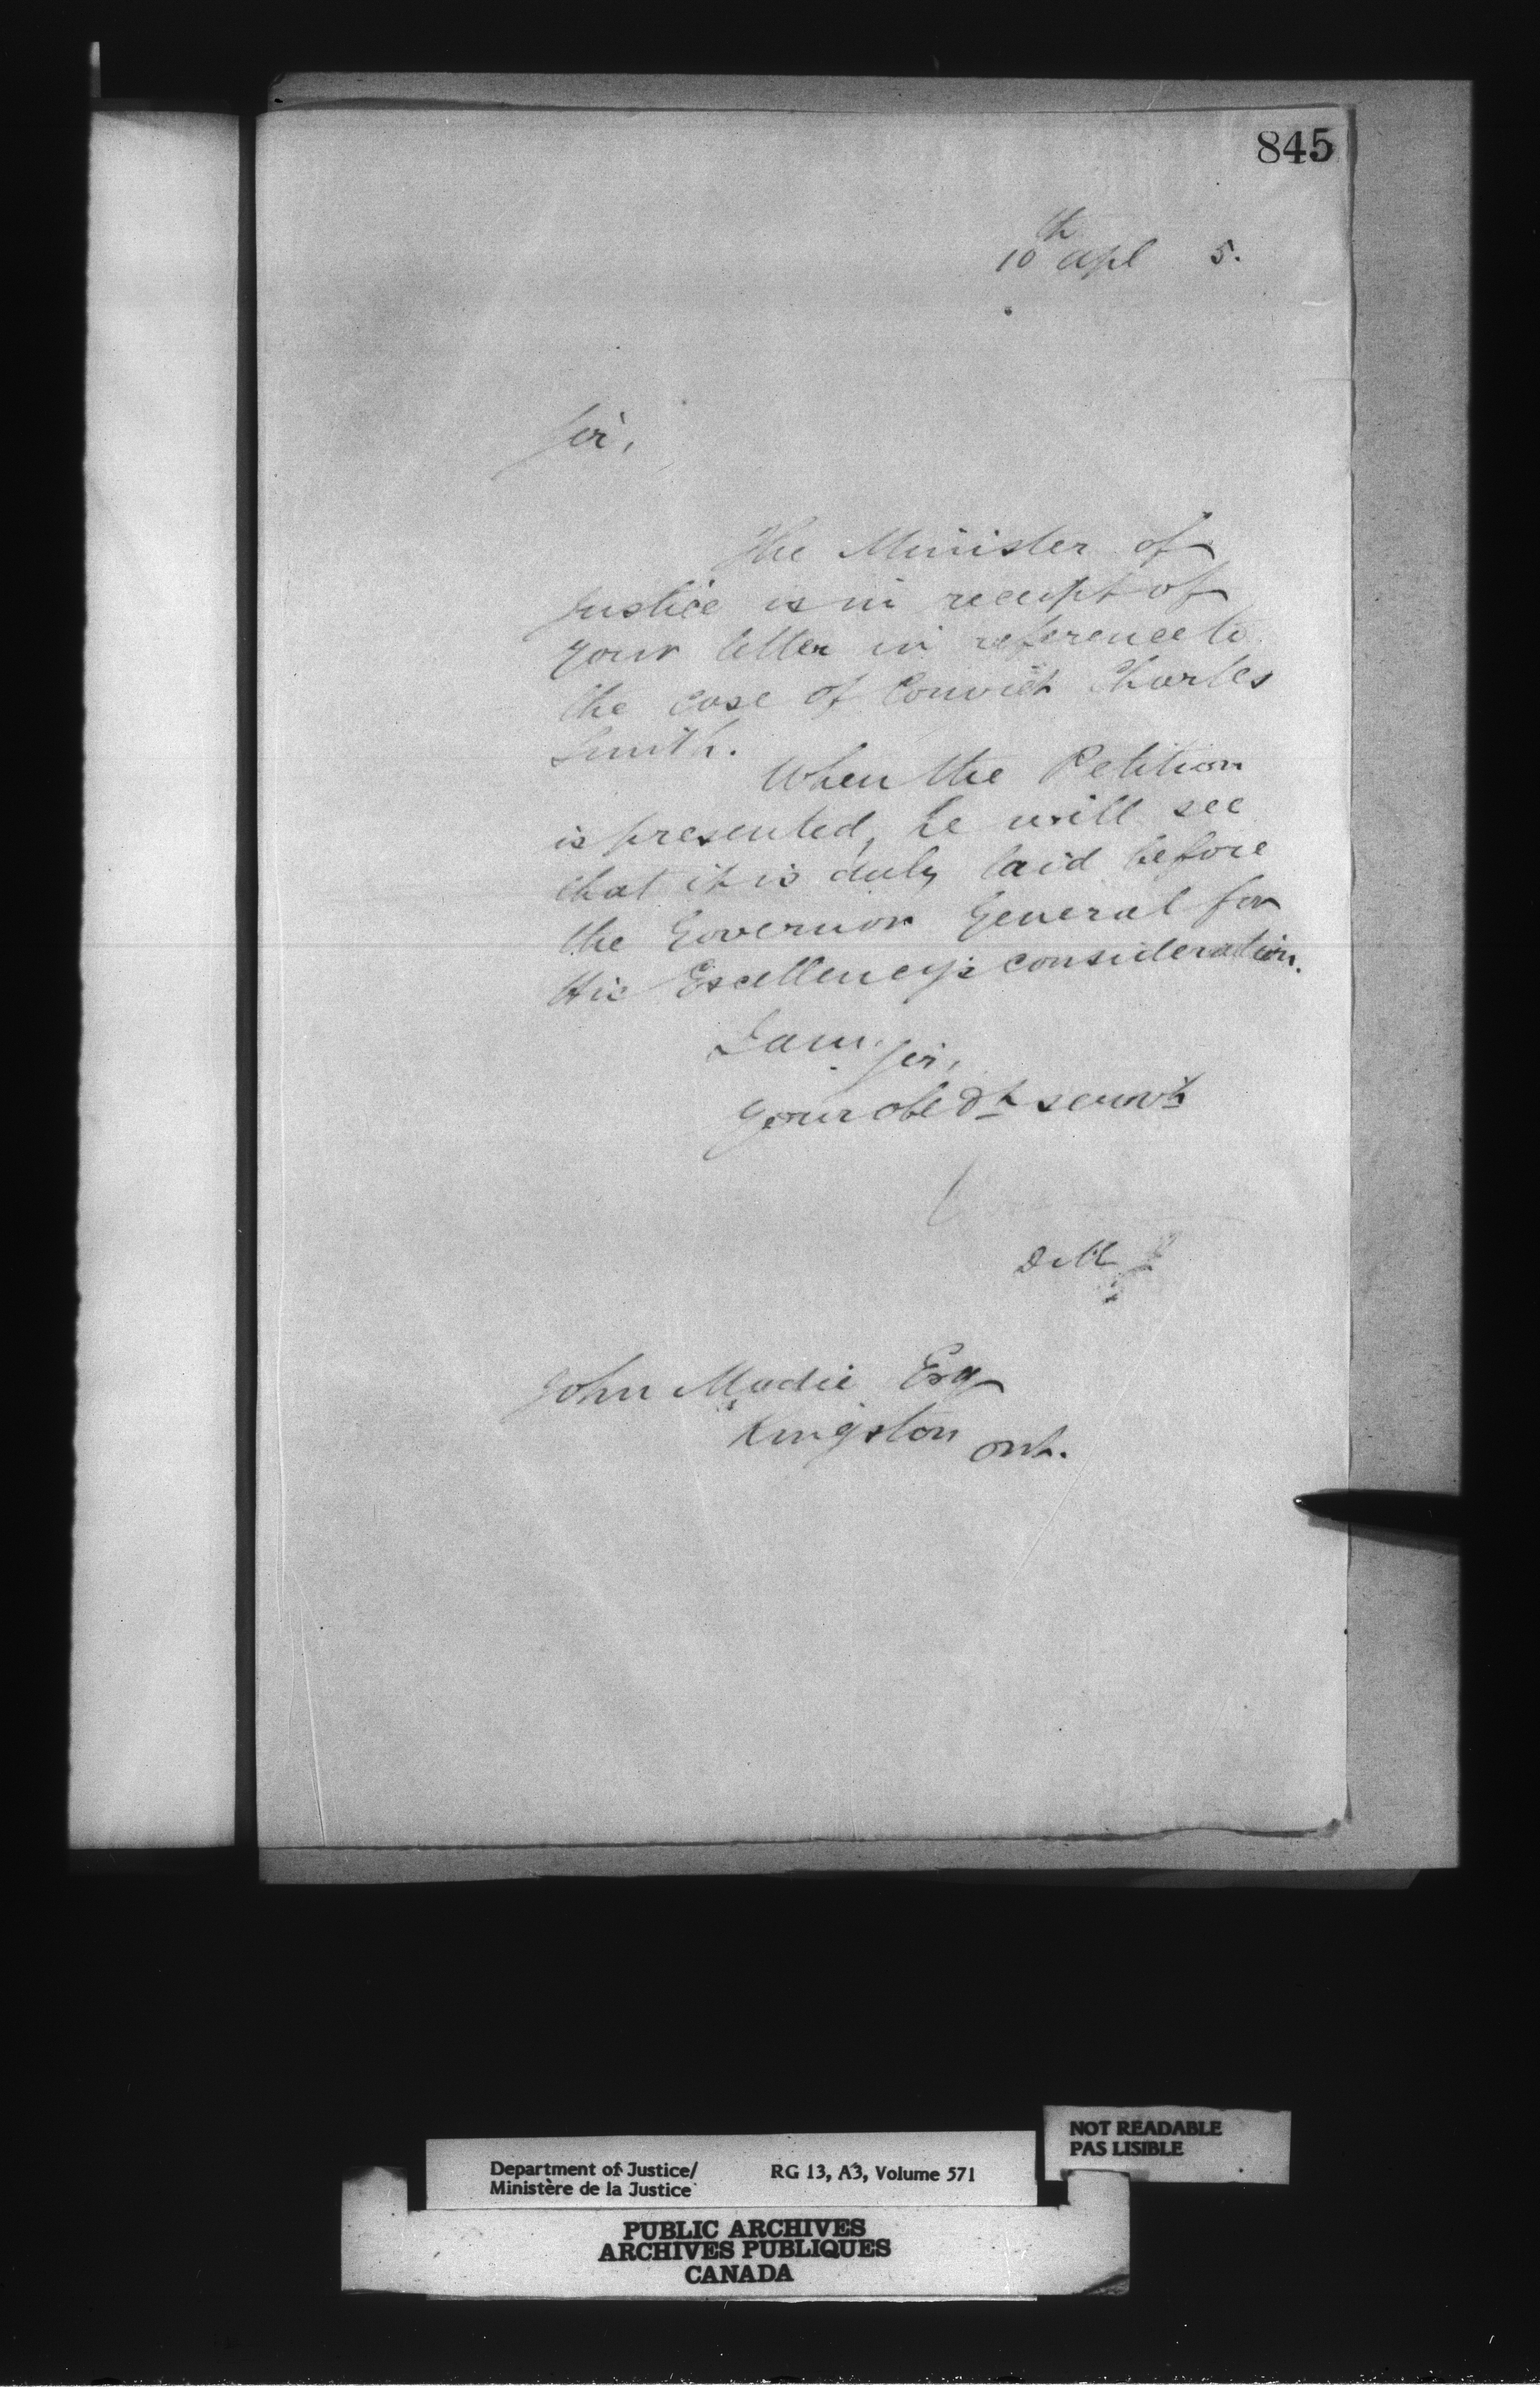 845
10th Apl 5.
Sir,
The Minister of
Justice is in receipt of
your letter in reference to
the case of Convict Charles
Smith.
When the Petition
is presented, he will see
that it is duly laid before
the Governor General for
His Excellency's consideration.
I am Sir,
Your obedt servnt
D M J
John Mudie Esq
Kingston Ont.
NOT READABLE
PAS LISIBLE
Department of Justice/ RG 13, A3, Volume 571
Ministère de la Justice
PUBLIC ARCHIVES
ARCHIVES PUBLIQUES
CANADA